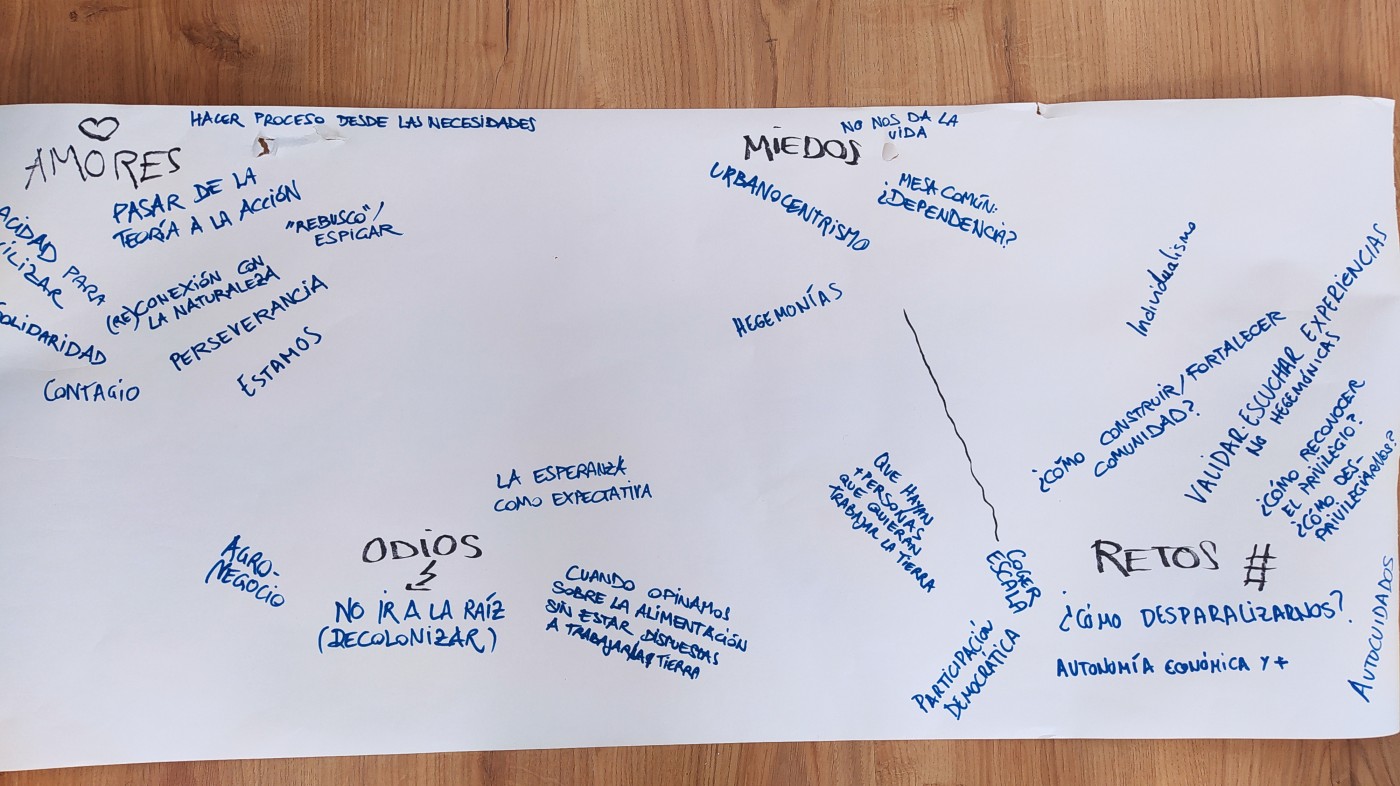 AMORES
HACER PROCESO DESDE LAS NECESIDADES
PASAR DE LA
TEORÍA A LA ACCIÓN
"REBUSCO"/
ESPIGAR
PARA
(RE)CONEXIÓN CON
LA NATURALEZA
PERSEVERANCIA
ESTAMOS
OLIDARIDAD
CONTAGIO
MIEDOS
NO NOS DA LA
VIDA
URBANOCENTRISMO
MESA COMÚN:
¿DEPENDENCIA?
HEGEMONÍAS
Individualismo
¿CÓMO CONSTRUIR/FORTALECER
COMUNIDAD?
VALIDAR-ESCUCHAR EXPERIENCIAS
NO HEGEMÓNICAS
¿CÓMO RECONOCER
EL PRIVILEGIO?
¿CÓMO DES-
PRIVILEGIARNOS?
LA ESPERANZA
COMO EXPECTATIVA
ODIOS
AGRO-
NEGOCIO
NO IR A LA RAÍZ
(DECOLONIZAR)
CUANDO OPINAMOS
SOBRE LA ALIMENTACIÓN
SIN ESTAR DISPUESTAS
A TRABAJAR LA TIERRA
QUE HAYAN
+PERSONAS
QUE QUIERAN
TRABAJAR LA TIERRA
COGER
ESCALA
PARTICIPACIÓN
DEMOCRÁTICA
RETOS #
¿CÓMO DESPARALIZARNOS?
AUTONOMÍA ECONÓMICA Y +
AUTOCUIDADOS